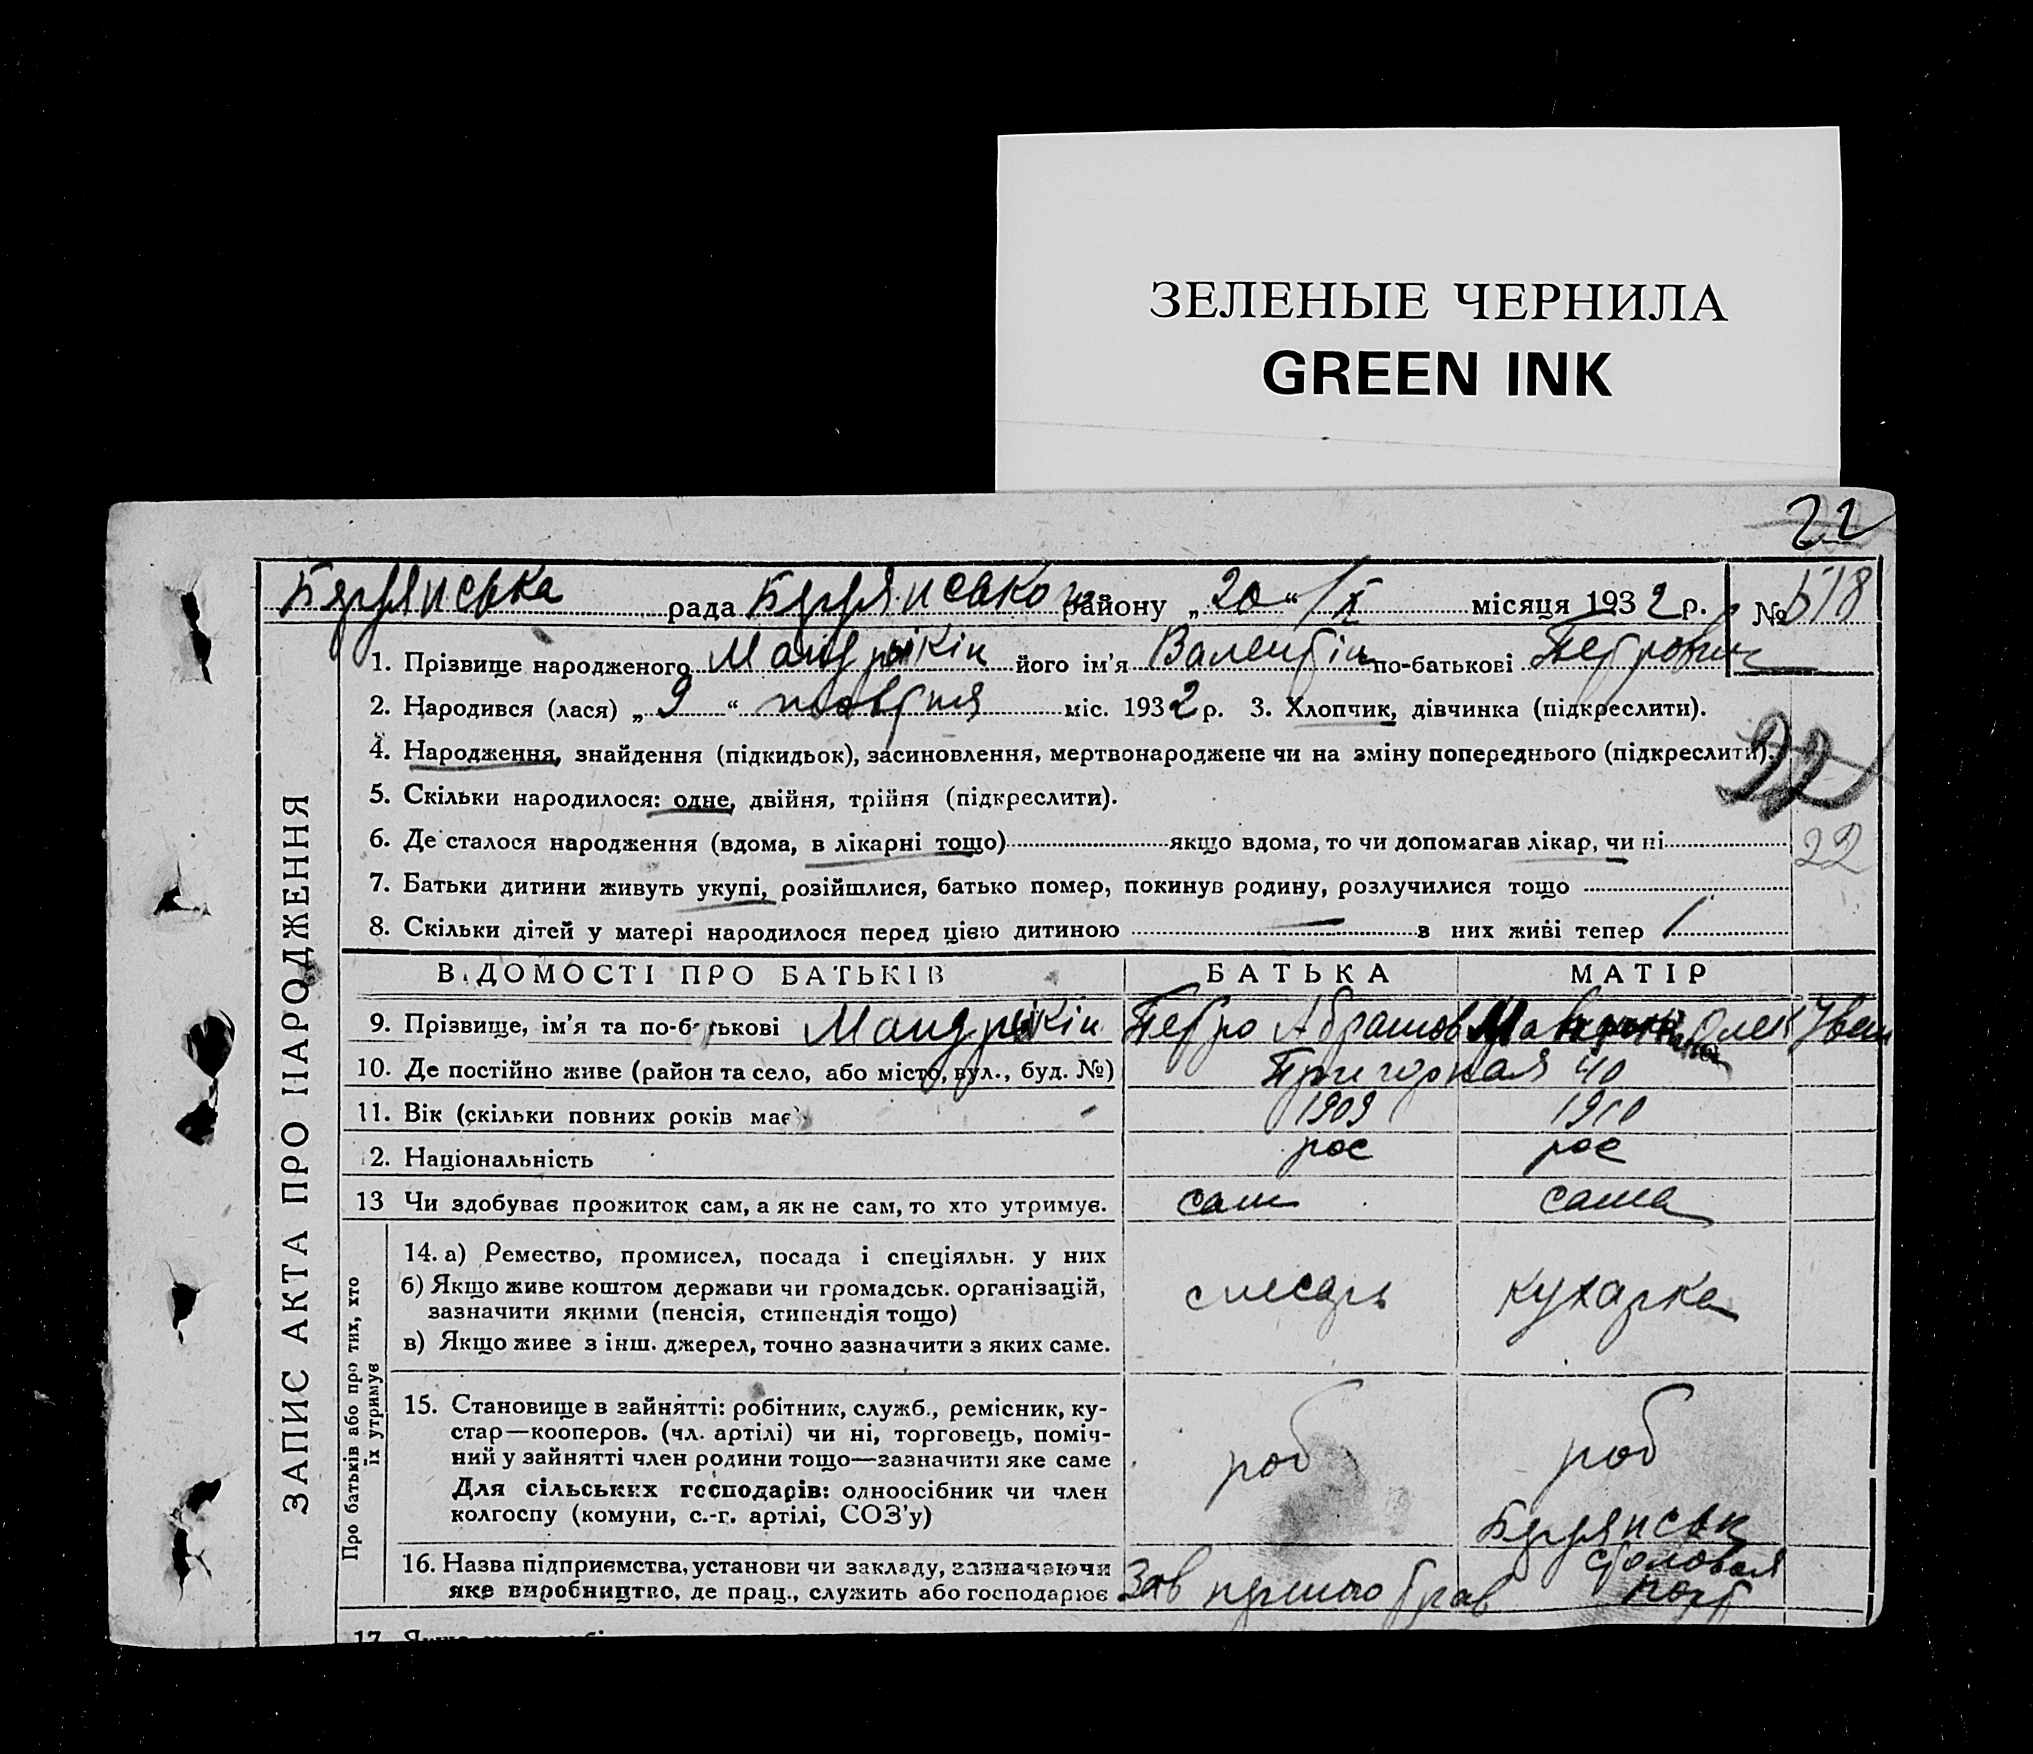 ЗЕЛЕНЫЕ ЧЕРНИЛА
GREEN INK
22
Бердянська рада Бердянсько району „20“ /X місяця 1932 р. № 518
1. Прізвище народженого Мандрікін його ім'я Валентін по-батькові Петрович
2. Народився (лася) „9“ міс. 1932 р. 3. Хлопчик, дівчинка (підкреслити).
4. Народження, знайдення (підкидьок), засиновлення, мертвонароджене чи на зміну попереднього (підкреслити).
22
5. Скільки народилося: одне, двійня, трійня (підкреслити).
6. Де сталося народження (вдома, в лікарні тощо) якщо вдома, то чи допомагав лікар, чи ні
22
7. Батьки дитини живуть укупі, розійшлися, батько помер, покинув родину, розлучилися тощо
8. Скільки дітей у матері народилося перед цією дитиною — з них живі тепер /
ЗАПИС АКТА ПРО НАРОДЖЕННЯ
ВІДОМОСТІ ПРО БАТЬКІВ БАТЬКА МАТІР
9. Прізвище, ім'я та по-батькові Мандрікін Петро Абрамов
10. Де постійно живе (район та село, або місто, вул., буд. №) 40
11. Вік (скільки повних років має) 1909 1910
12. Національність рос рос
13 Чи здобуває прожиток сам, а як не сам, то хто утримує. сам сама
Про батьків або про тих, хто їх утримує
14. а) Ремество, промисел, посада і спеціяльн. у них
б) Якщо живе коштом держави чи громадськ. організацій,
зазначити якими (пенсія, стипендія тощо) слесарь кухарка
в) Якщо живе з інш. джерел, точно зазначити з яких саме.
15. Становище в зайнятті: робітник, служб., ремісник, ку-
стар—кооперов. (чл. артілі) чи ні, торговець, поміч-
ний у зайнятті член родини тощо—зазначити яке саме роб роб
Для сільських господарів: одноосібник чи член
колгоспу (комуни, с.-г. артілі, СОЗ'у) Бердянськ
16. Назва підприємства, установи чи закладу, зазначаючи столовая
яке виробництво, де прац., служить або господарює Зав порт
17.